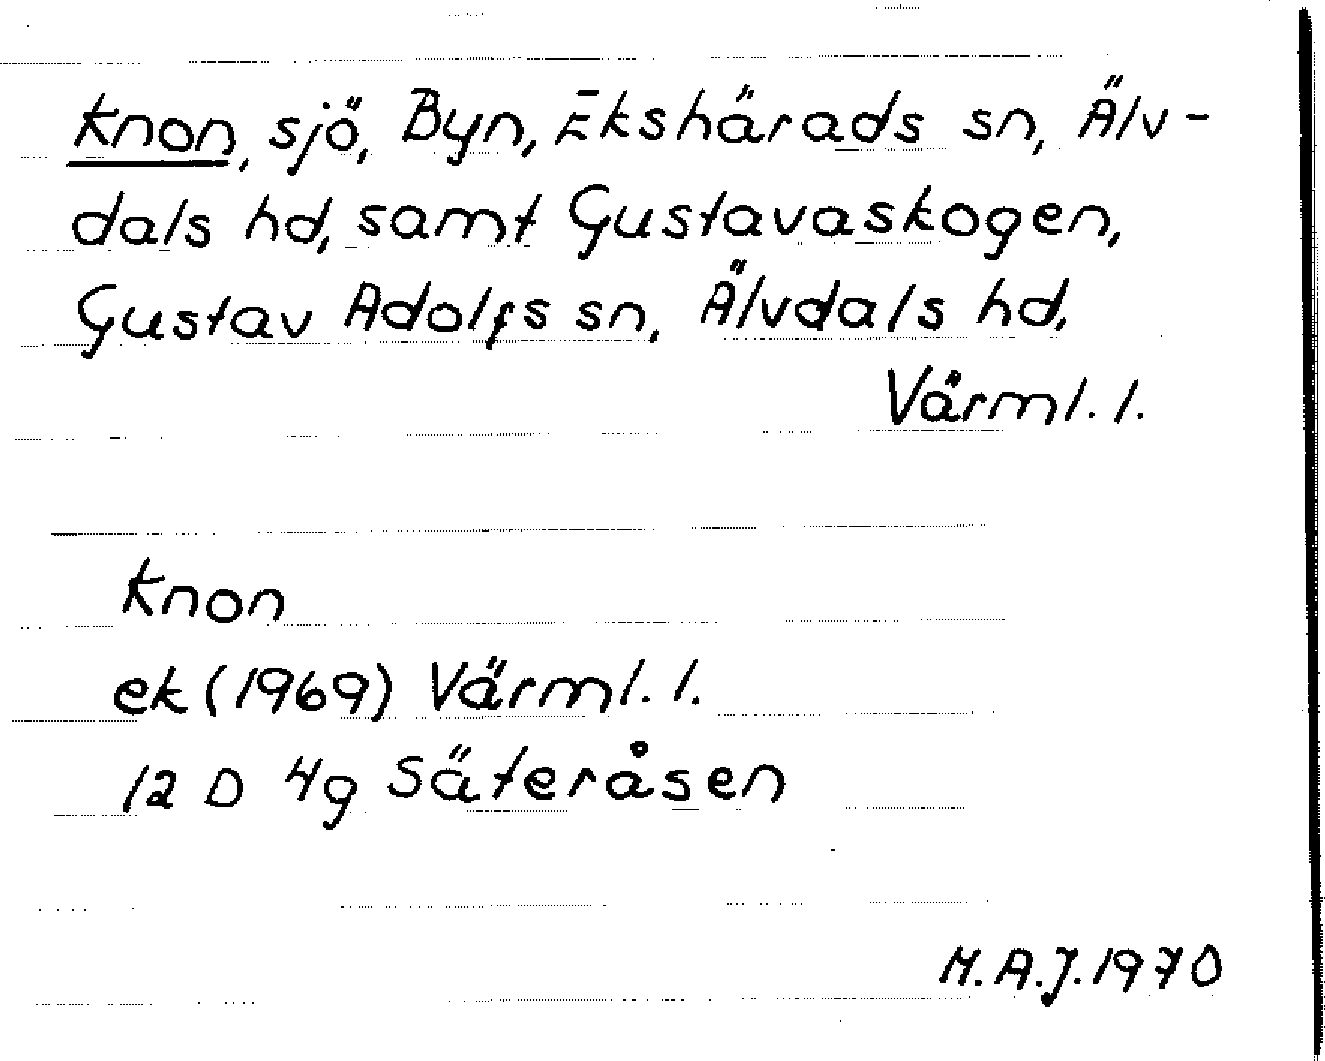 Knon, sjö, Byn, Ekshärads sn, Älv-
dals hd, samt Gustavaskogen,
Gustav Adolfs sn, Älvdals hd,
Värml. l.
Knon
ek (1969) Värml. l.
12 D 4g Säteråsen
M.A.J. 1970